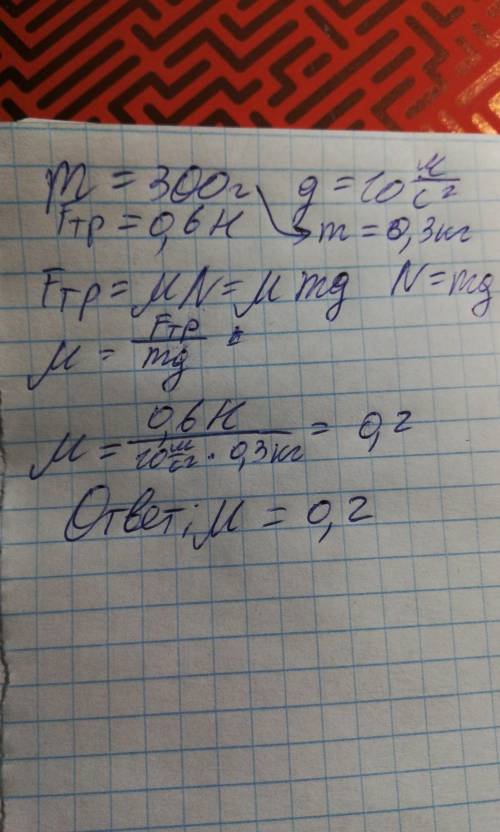 m = 300г g = 10 м/с²
Fтр = 0,6Н m = 0,3кг
Fтр = μN = μmg N = mg
μ = Fтр/mg
μ = 0,6Н/10 м/с² · 0,3кг = 0,2
Ответ: μ = 0,2